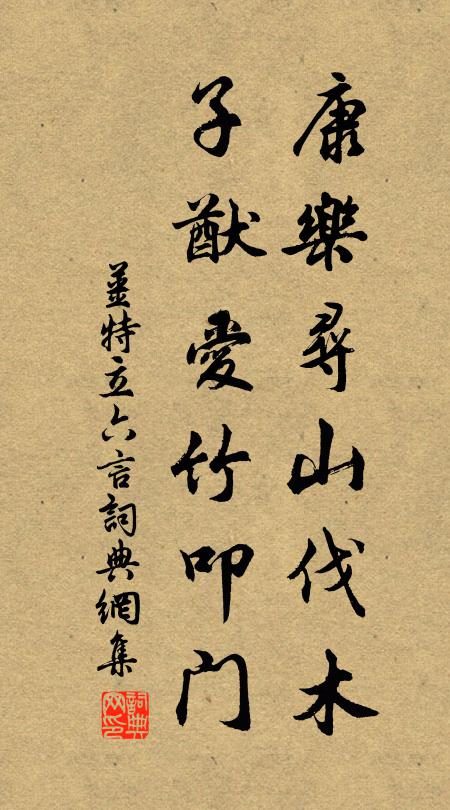 康樂尋山伐木
子猷愛竹叩门
姜特立六言詞典網集
詞典网印